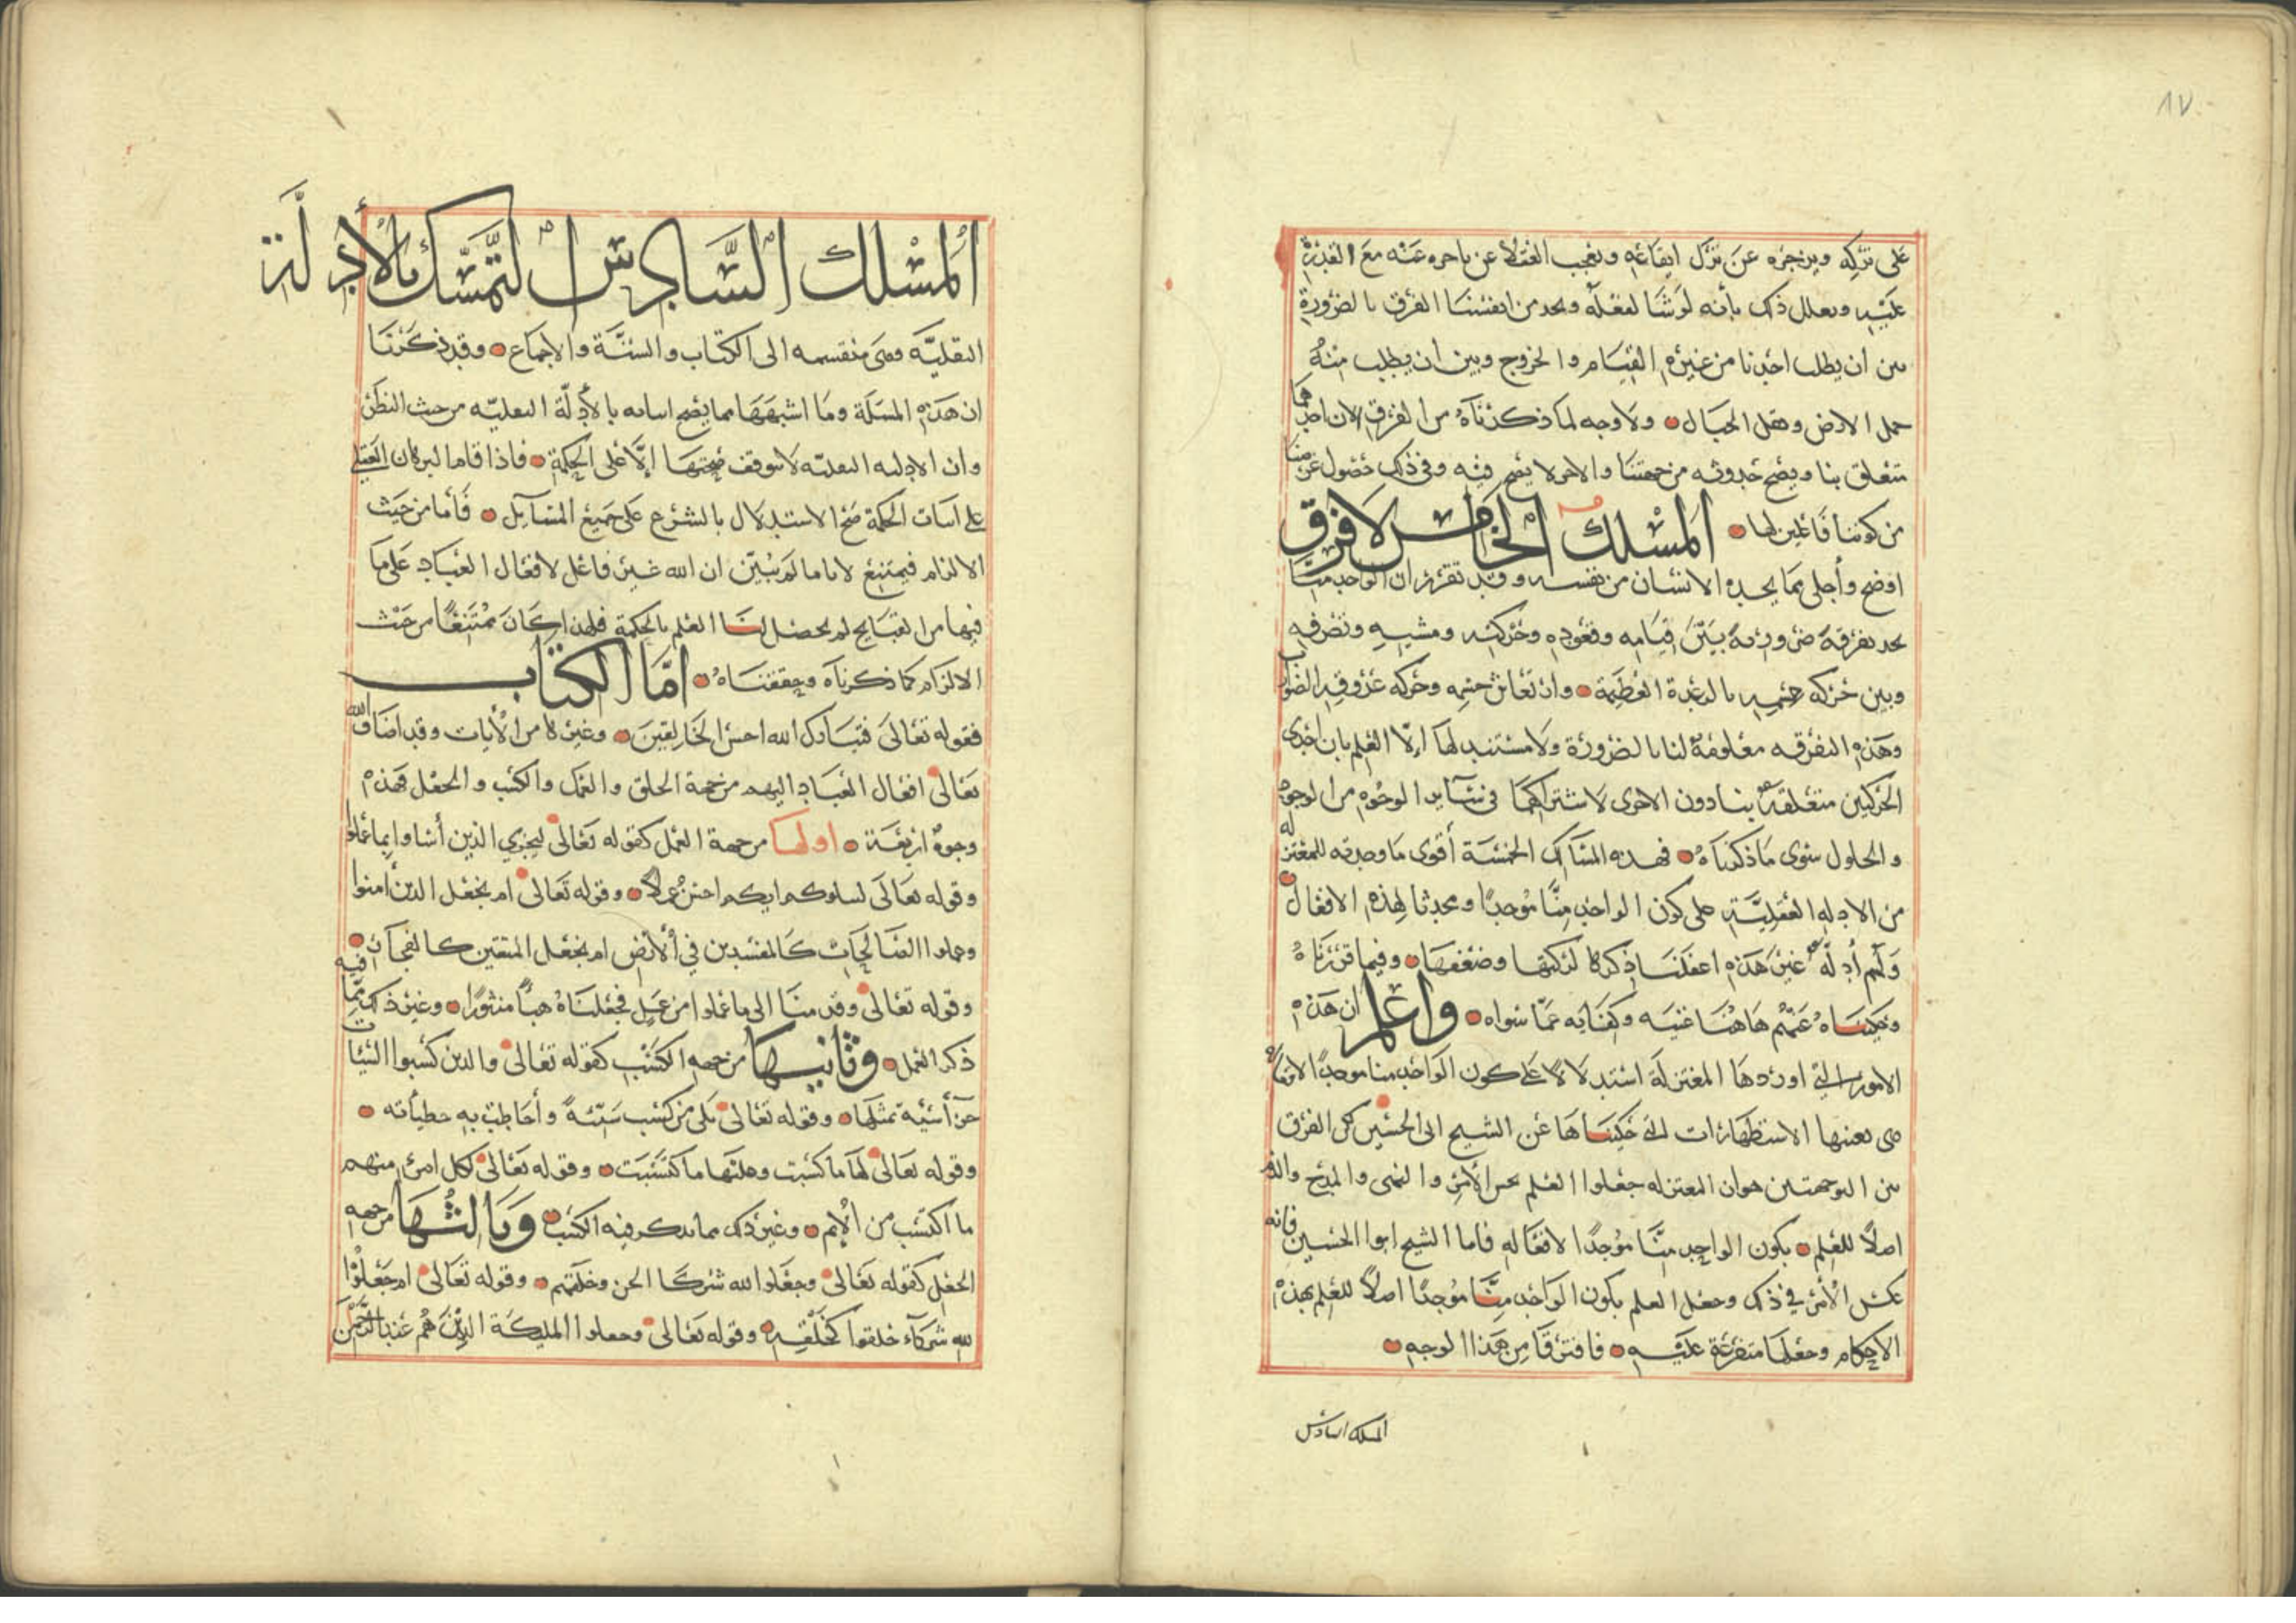 ٨٧
على تركه ويزجره عن ترك ايقاعه وتعجب العقلا عن باحره عنه مع القدرة
عليه ويعلل ذلك بأنه لو شا لفعله ونجد من انفسنا الفرق بالضرورة
بين ان يطلب احدنا من غيره القيام والخروج وبين ان يطلب منه
حمل الارض ونقل الجبال ولا وجه لما ذكرناه من الفرق الا ان احدهما
متعلق بنا ويصح حدوثه من جهتنا والاخر لا يصح فيه وفي ذلك حصول غرضنا
من كوننا فاعلين لها المسلك الخامس لا فرق
اوضح وأجلى مما يجده الانسان من نفسه وقد تقرر ان الواحد منا
يجد تفرقة ضرورية بين قيامه وقعوده وحركته ومشيه وتصرفه
وبين حركة جسمه بالرعدة العظيمة وان تعاش جسمه وحركة عروقه الضوارب
وهذه التفرقه معلومة لنا بالضرورة ولا مستند لها الا العلم بان احدى
الحركتين متعلقة بنا دون الاخرى لاشتراكهما في سائر الوجوه من الوجود
والحلول سوى ما ذكرناه فهذه المسالك الخمسة أقوى ما وجدته للمعتزله
من الادله العقلية على كون الواحد منا موجدا ومحدثا لهذه الافعال
ولهم أدلة غير هذه اغفلنا ذكرها لركتها وضعفها وفيما قررناه
وحكيناه عنهم هاهنا غنيه وكفايه عما سواه واعلم ان هذه
الامور التي اوردها المعتزلة استدلالا على كون الواحد منا موجدا لافعاله
هي بعينها الاستظهارات التي حكيناها عن الشيخ ابي الحسين لكن الفرق
بين الوجهتين هو ان المعتزله جعلوا العلم بحسن الأمر والنهي والمدح والذم
اصلا للعلم بكون الواحد منا موجدا لافعاله فاما الشيخ ابوا الحسين فانه
عكس الأمر في ذلك وجعل العلم بكون الواحد منا موجدا اصلا للعلم بهذه
الاحكام وجعلها متفرعة عليه فافترقا من هذا الوجه
المسلك السادس
المسلك السادس التمسك بالأدلة
النقلية وهي منقسمه الى الكتاب والسنة والاجماع وقد ذكرنا
ان هذه المسلة وما اشبهها مما يصح اثباته بالأدلة النقليه من حيث النظر
وان الادله النقليه لا تتوقف صحتها الا على الحكمة فاذا قام البرهان العقلي
على اثبات الحكمة صح الاستدلال بالشرع على جميع المسائل فأما من حيث
الالزام فيمتنع لانا ما لم نبين ان الله غير فاعل لافعال العباد على ما
فيها من القبايح لم يحصل لنا العلم بالحكمة فلهذا كان ممتنعا من حيث
الالزام كما ذكرناه وحققناه اما الكتاب
فقوله تعالى فتبارك الله احسن الخالقين وغيرها من الأيات وقد اضاف الله
تعالى افعال العباد اليهم من جهة الخلق والعمل والكسب والجعل فهذه
وجوه اربعة اولها من جهة العمل كقوله تعالى ليجزي الذين أساوا بما عملوا
وقوله تعالى ليبلوكم ايكم احسن عملا وقوله تعالى ام نجعل الذين أمنوا
وعملوا الصالحات كالمفسدين في الأرض ام نجعل المتقين كالفجار
وقوله تعالى وقدمنا الى ما عملوا من عمل فجعلناه هبا منثورا وغير ذلك مما فيه
ذكر العمل وثانيها من جهة الكسب كقوله تعالى والذين كسبوا السيئات
جزأ سيئة بمثلها وقوله تعالى بلى من كسب سيئة وأحاطت به خطيأته
وقوله تعالى لها ما كسبت وعليها ما اكتسبت وقوله تعالى لكل امرئ منهم
ما اكتسب من الإثم وغير ذلك مما يذكر فيه الكسب وثالثها من جهه
الجعل كقوله تعالى وجعلوا لله شركا الجن وخلقهم وقوله تعالى ام جعلوا
لله شركاء خلقوا كخلقه وقوله تعالى وجعلوا المليكة الذين هم عند الرحمن